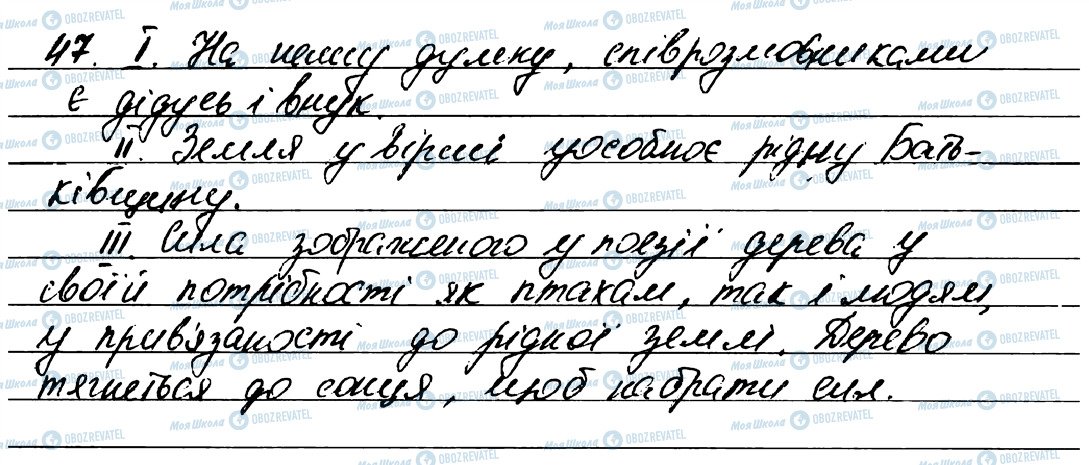 47. I. На нашу думку, співрозмовниками
є дідусь і внук.
II. Земля у вірші уособлює рідну Бать-
ківщину.
III. Сила зображеного у поезії дерева у
своїй потрібності як птахам, так і людям,
у прив'язаності до рідної землі. Дерево
тягнеться до сонця, щоб набрати сил.